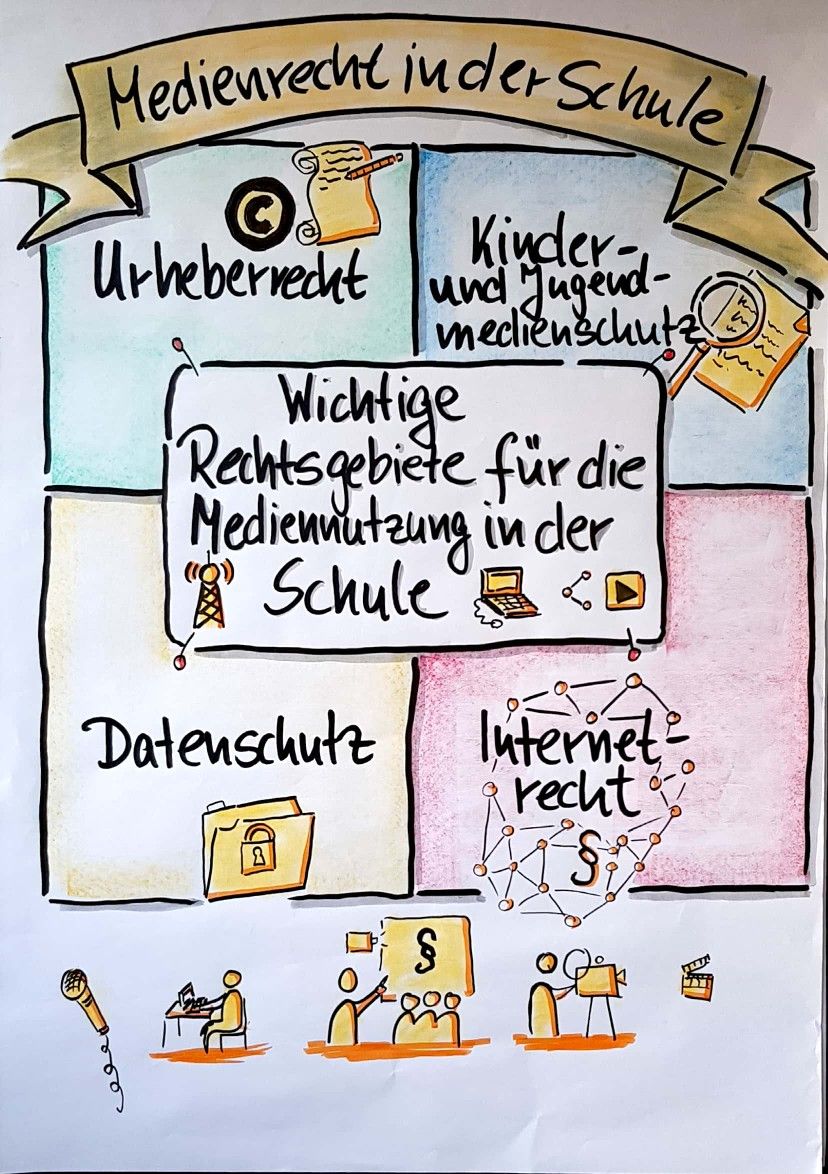 Medienrecht in der Schule
©
Urheberrecht
Kinder-
und Jugend-
medienschutz
Wichtige
Rechtsgebiete für die
Mediennutzung in der
Schule
Datenschutz
Internet-
recht
§
§